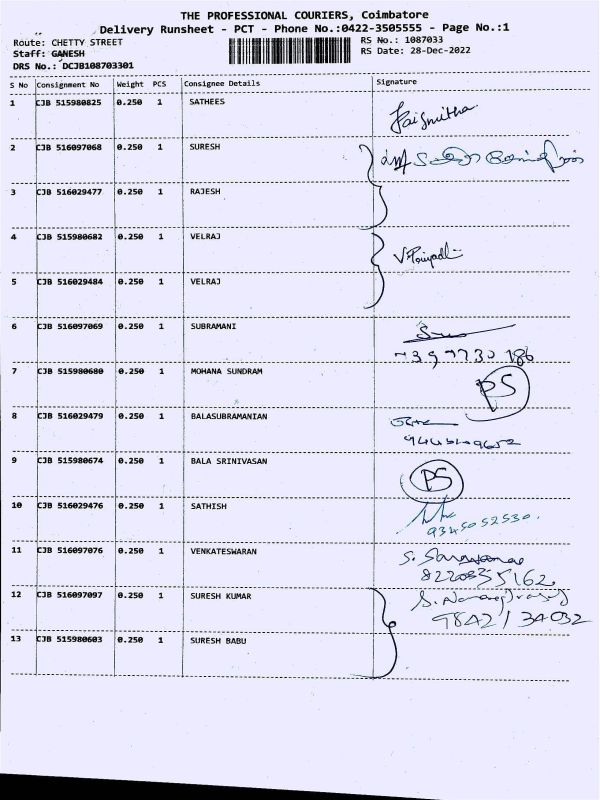 THE PROFESSIONAL COURIERS, Coimbatore
Delivery Runsheet - PCT - Phone No.:0422-3505555 - Page No.:1
Route: CHETTY STREET
RS No.: 1087033
Staff: GANESH
RS Date: 28-Dec-2022
DRS No.: DCJB108703301
S No Consignment No Weight PCS Consignee Details Signature
1 CJB 515980825 0.250 1 SATHEES
2 CJB 516097068 0.250 1 SURESH
3 CJB 516029477 0.250 1 RAJESH
4 CJB 515980682 0.250 1 VELRAJ
5 CJB 516029484 0.250 1 VELRAJ
6 CJB 516097069 0.250 1 SUBRAMANI
7 CJB 515980680 0.250 1 MOHANA SUNDRAM PS
8 CJB 516029479 0.250 1 BALASUBRAMANIAN
9 CJB 515980674 0.250 1 BALA SRINIVASAN PS
10 CJB 516029476 0.250 1 SATHISH
9345052530.
11 CJB 516097076 0.250 1 VENKATESWARAN
12 CJB 516097097 0.250 1 SURESH KUMAR
9842134032
13 CJB 515980603 0.250 1 SURESH BABU